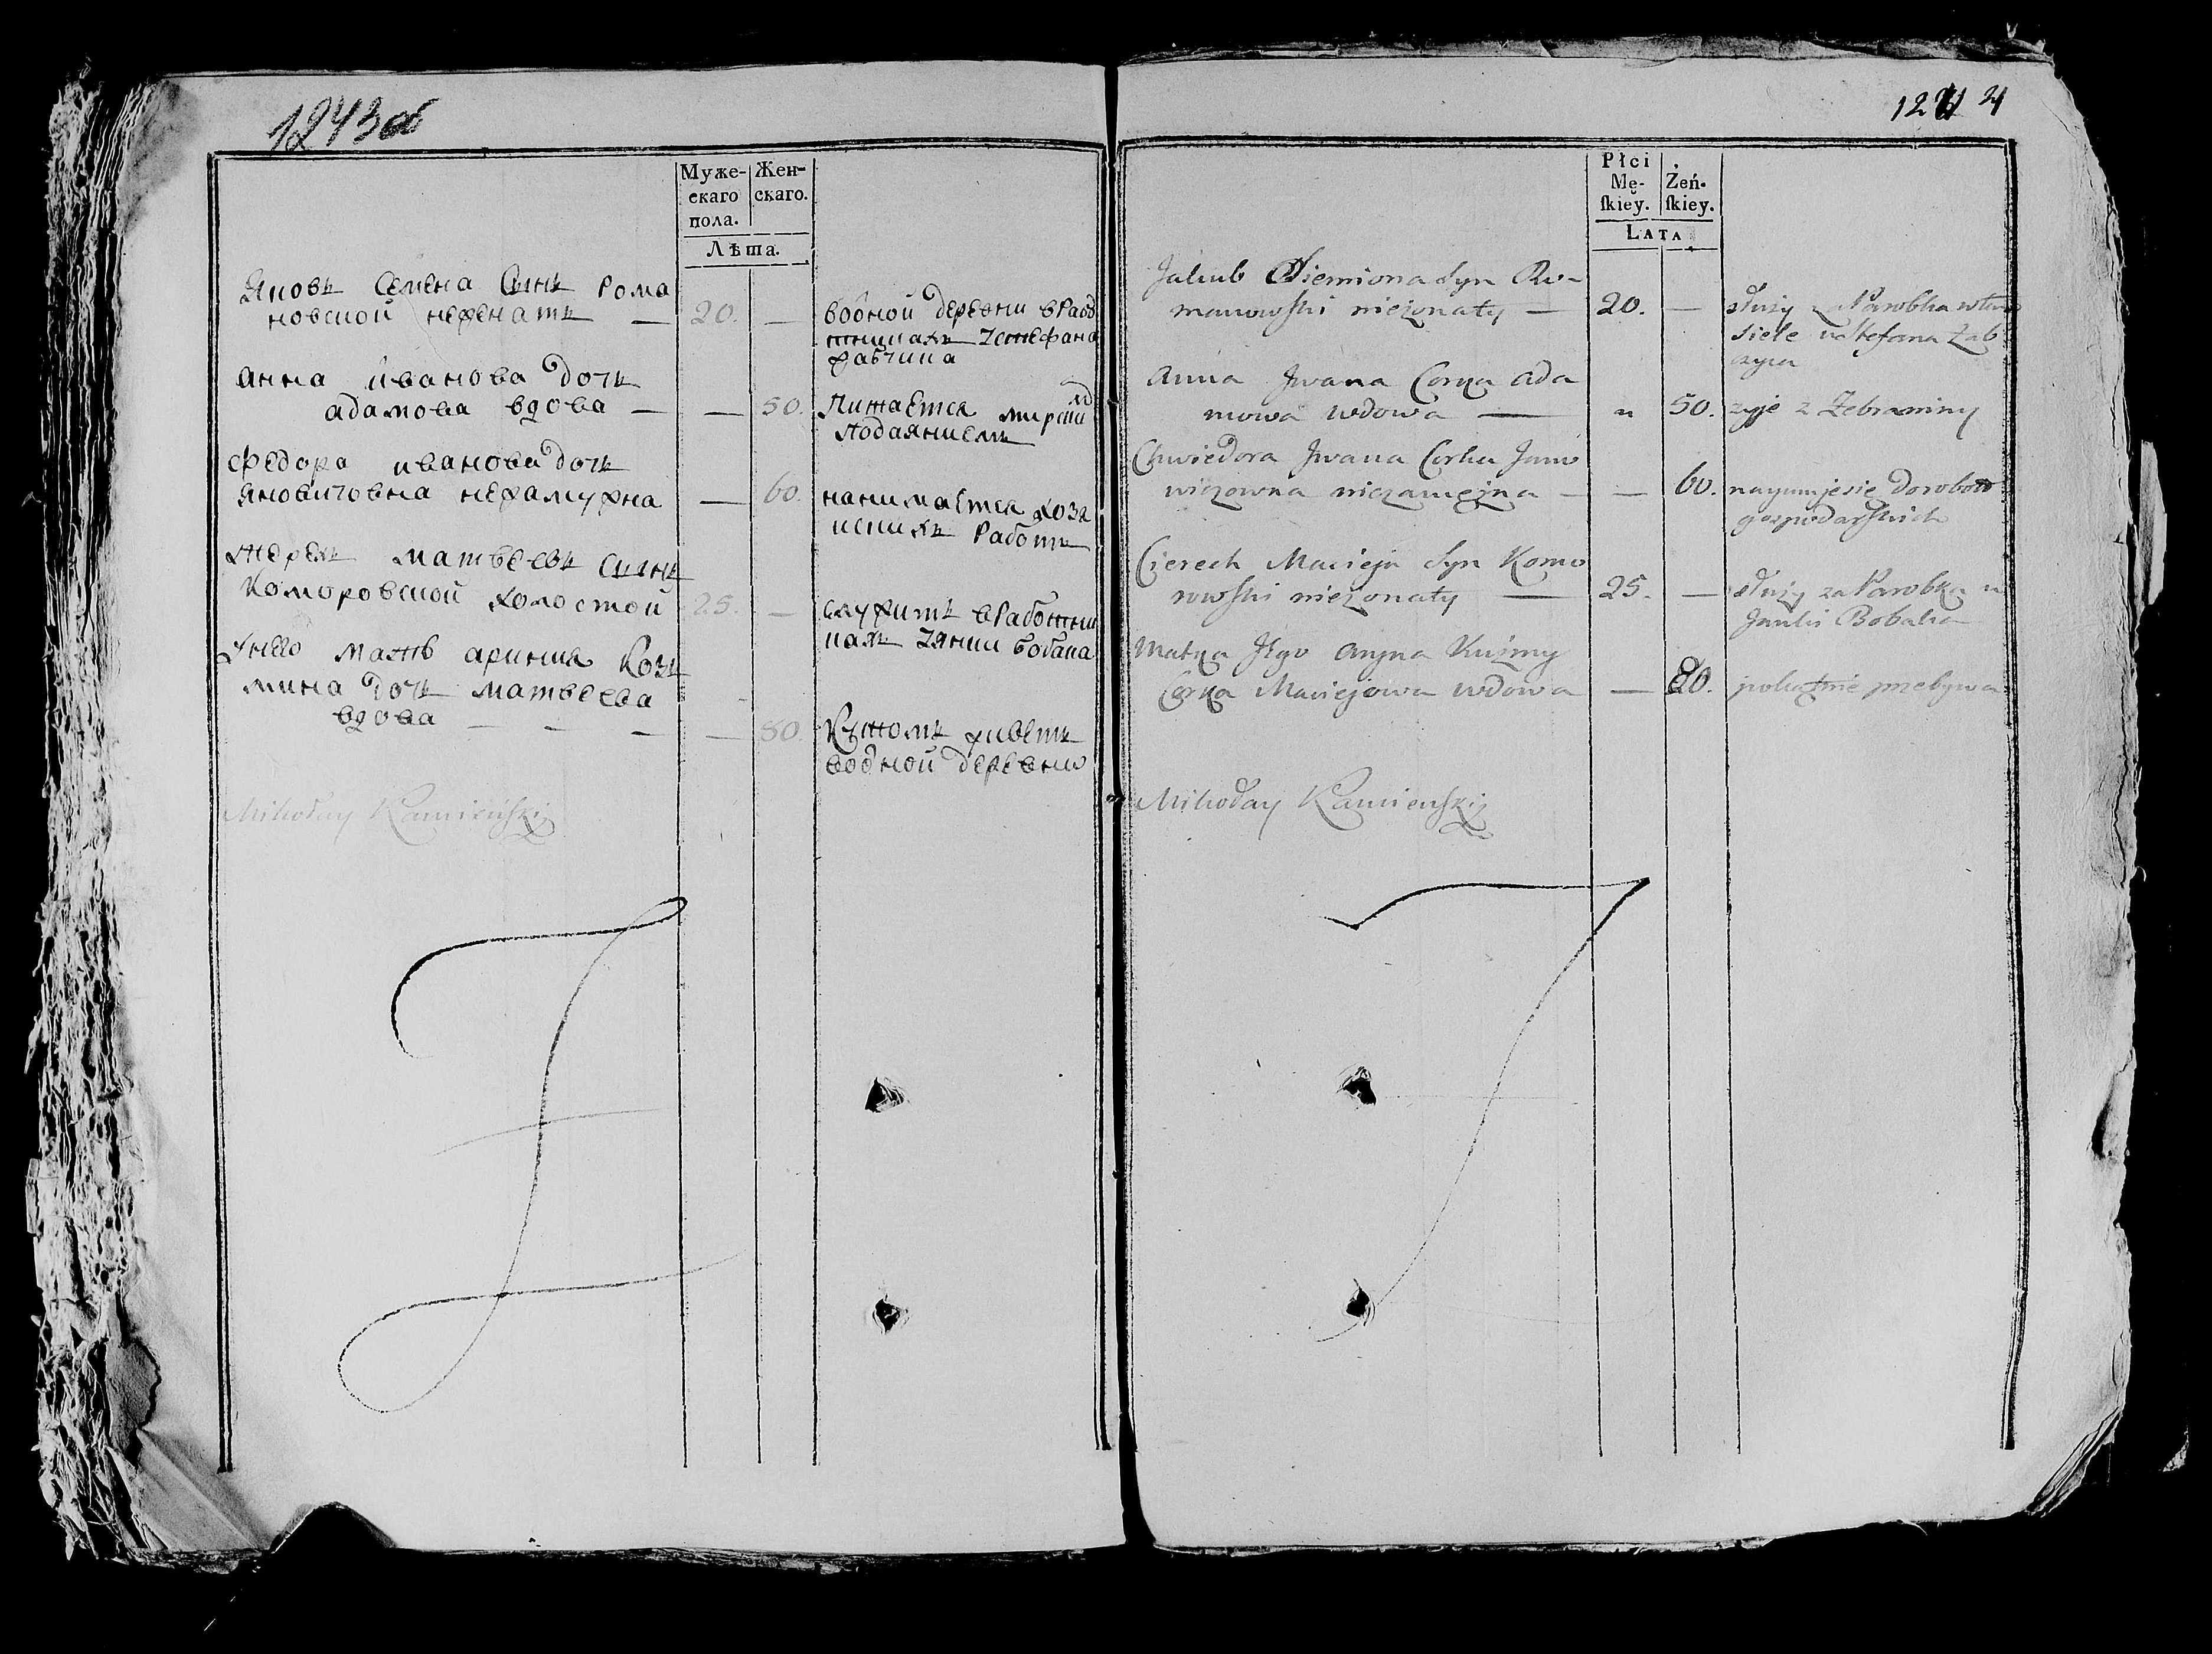 1243об
Муже-
скаго
пола.
Жен-
скаго.
Лѣта.
Яковъ Семена Сынъ Рома
новской нежена́тъ —
20.
—
водной деревни вРабо
тникахъ Устефана
Жабчика
Анна иванова дочь
адамова вдова —
—
50.
Питается мирски
подаяниемъ
Федора иванова дочь
Яновичовна незамужна
—
60.
нанимается хозя
искихъ Работъ
Терехъ матвеевъ сынъ
Коморовской холостой
25.
—
служитъ вРаботни
кахъ Уянки бобака
Унего мать арина Козь
мина дочь матвеева
вдова — — —
—
80.
Кутомъ живетъ
водной деревни
Mikołay Kamieński
124 4
Płci
Mę-
ſkiey.
Żeń-
ſkiey.
LATA
Jakub Siemiona Syn Ro-
manowski nieżonaty —
20.
—
służy z Parobka wtem
siele u Stefana Żab
czyka
Anna Jwana Corka Ada
mowa wdowa —
"
50.
żyje z Żebraniny
Chwiedora Jwana Corka Jano
wiczowna niezamężna —
—
60.
naymuje się do robot
gospodarskich
Cierech Macieja Syn Komo
rowski nieżonaty —
25.
—
służy za Parobka u
Janki Bobaka
Matka Jego Aryna Kuźmy
Corka Maciejowa wdowa
—
80.
pokątnie przebywa
Mikołay Kamieński